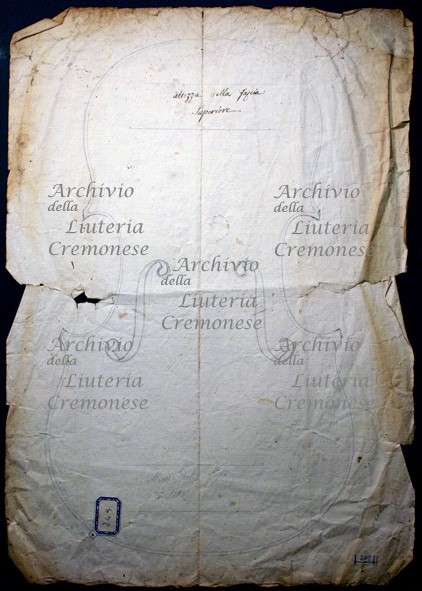 altezza della fascia
Superiore
Archivio
della
Liuteria
Cremonese
Archivio
della
Liuteria
Cremonese
Archivio
della
Liuteria
Cremonese
Archivio
della
Liuteria
Cremonese
Archivio
della
Liuteria
Cremonese